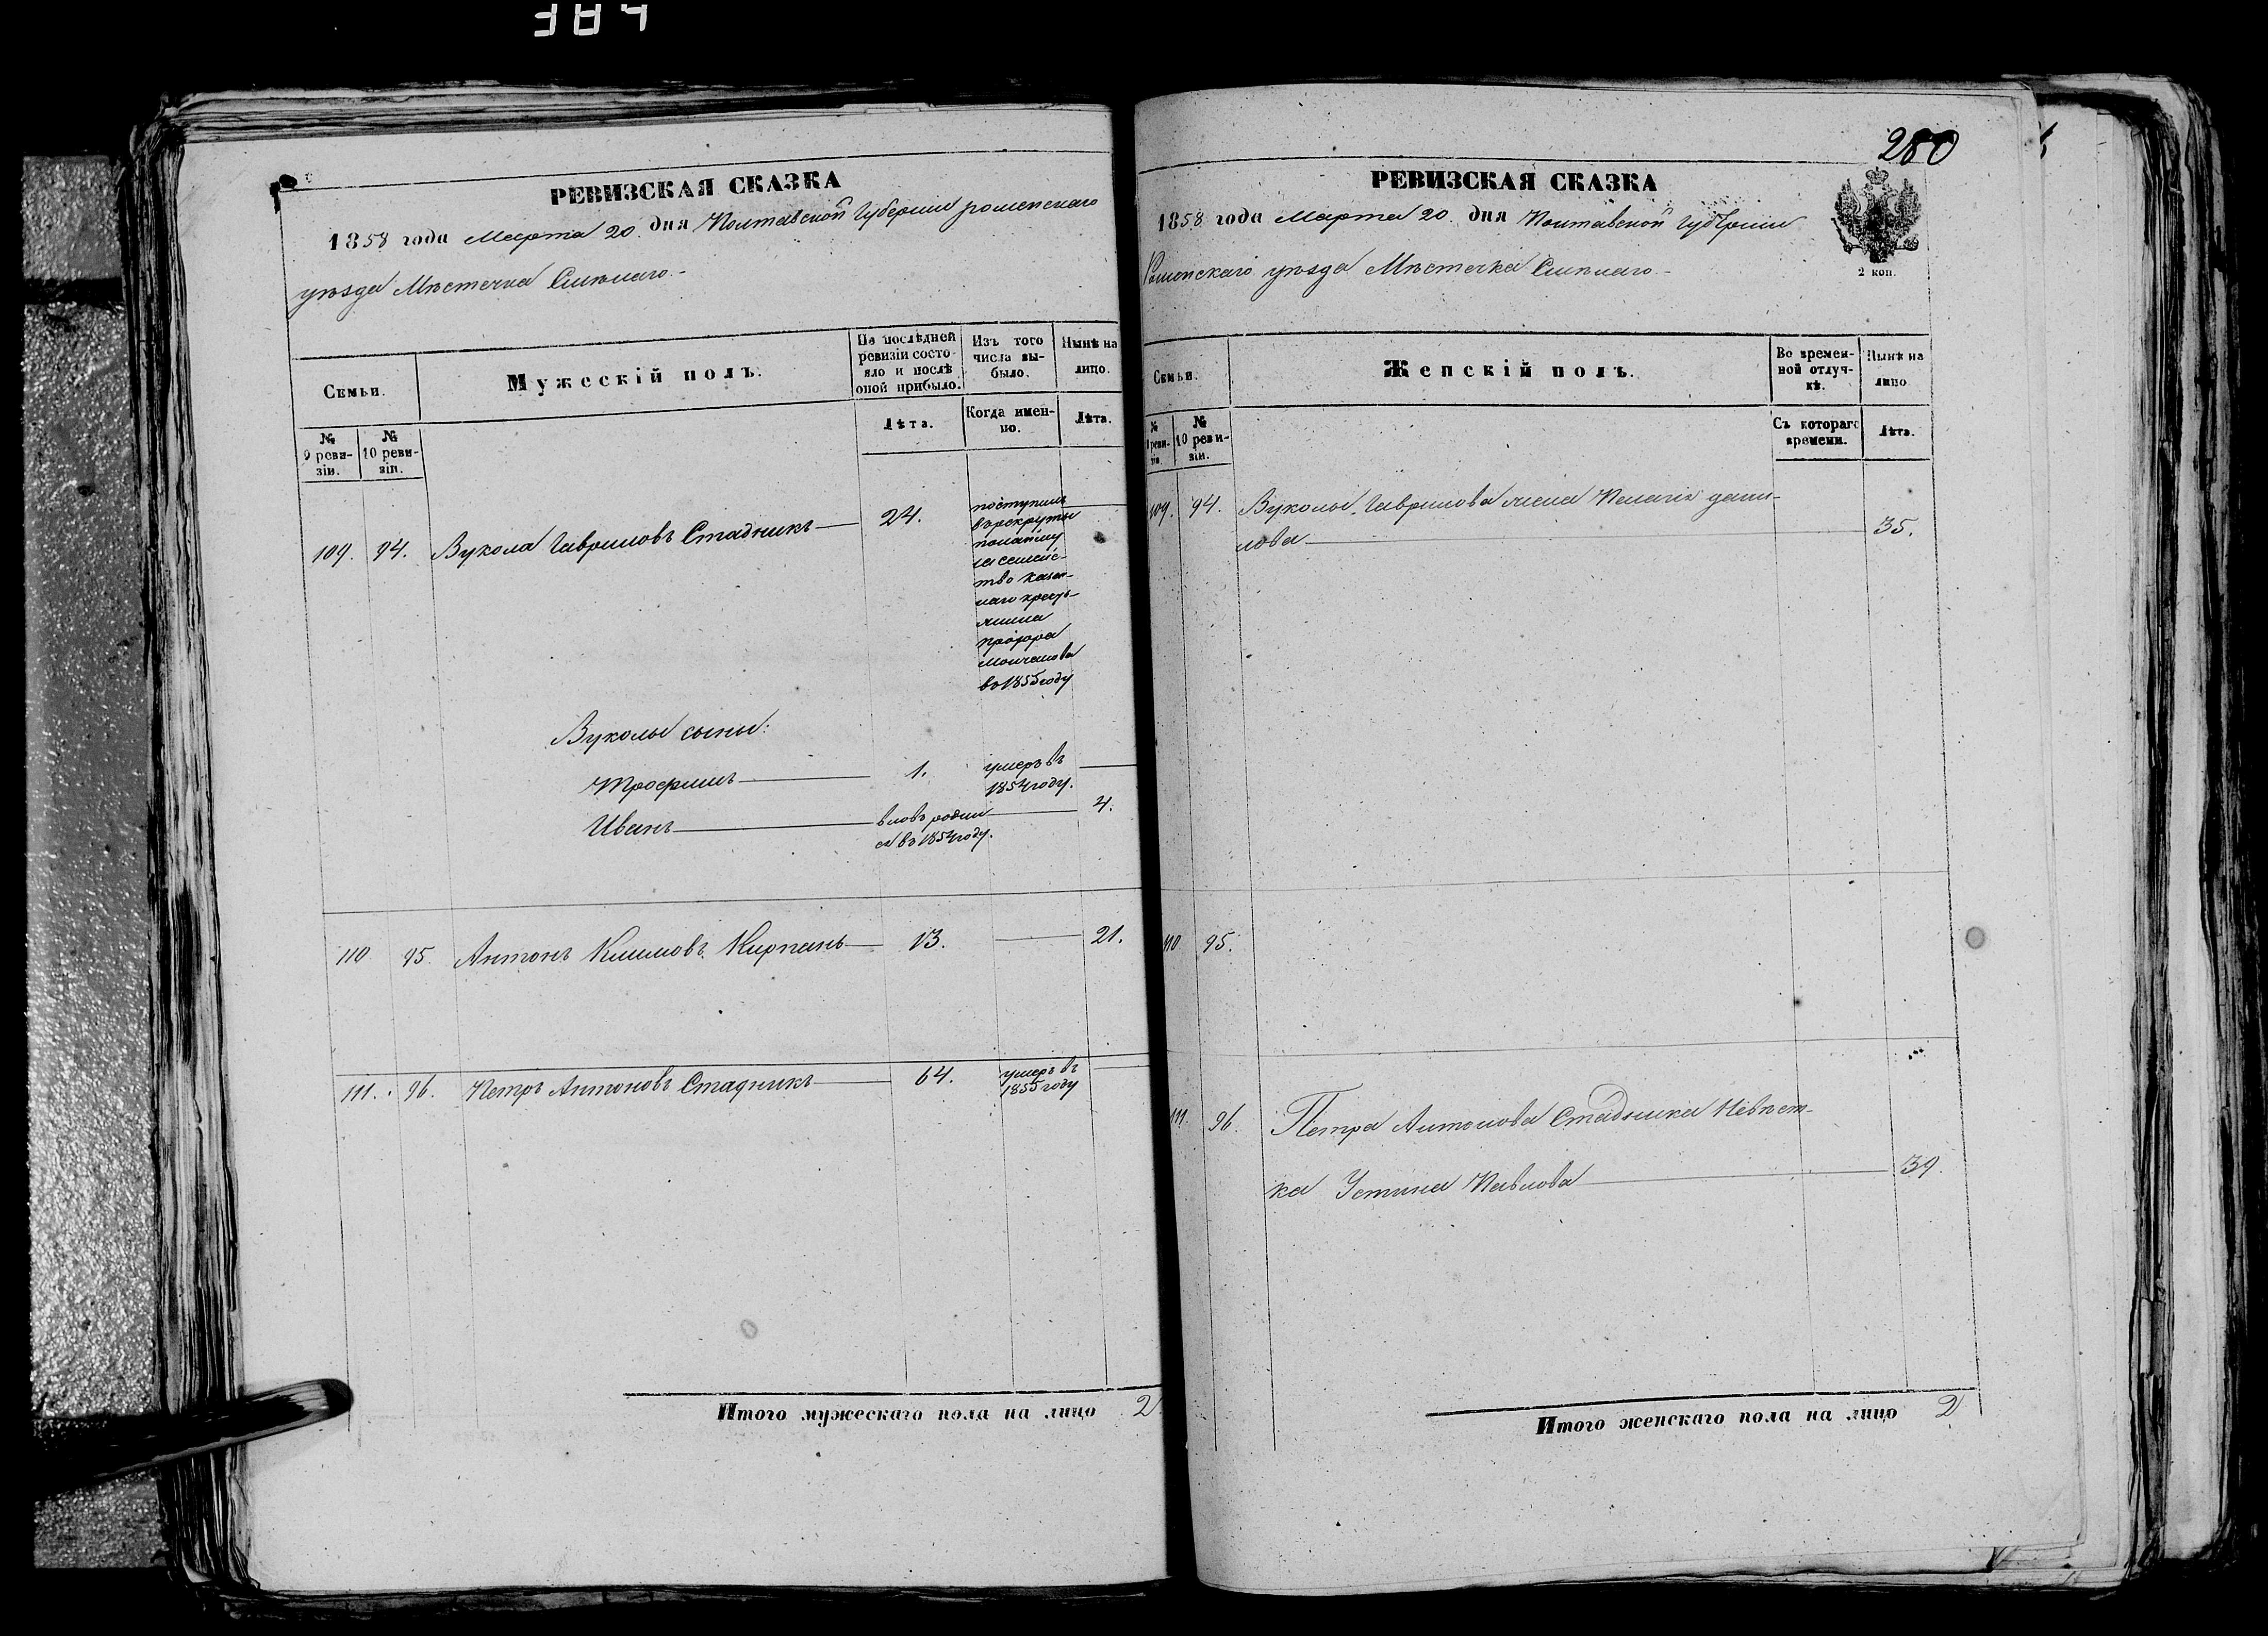 384
РЕВИЗСКАЯ СКАЗКА
1858 года Марта 20 дня Полтавской Губернии роменскаго
уѣзда Мѣстечка Смѣлаго.-
Семьи.
Мужескій полъ.
По послѣдней ревизіи состояло и послѣ оной прибыло.
Изъ того числа выбыло.
Нынѣ на лицо.
№ 9 ревизіи.
№ 10 ревизіи.
Лѣта.
Когда именно.
Лѣта.
109. 94. Вукола Гавриловъ Стадникъ 24.
поступилъ
въ рекруты
по найму
за семейс-
тво казен-
наго кресть-
янина
Молчанова
во 1855 году
Вуколы сыны:
Трофимъ 1. умеръ въ
1854 году.
Иванъ вновь родил 4.
ся въ 1854 году.
110 95. Антонъ Климовъ Кирпань 13. 21.
111. 96. Петръ Антоновъ Стадникъ 64. умеръ въ
1855 году
Итого мужескаго пола на лицо 2
280
РЕВИЗСКАЯ СКАЗКА
1858 года Марта 20 дня Полтавской Губернии
Роменскаго уѣзда Мѣстечка Смѣлаго.-
2 коп.
Семьи.
Женскій полъ.
Во временной отлучкѣ.
Нынѣ на лицо
№ 9 ревизіи.
№ 10 ревизіи.
Съ котораго времени.
Лѣта.
109. 94. Вуколы Гаврилова жена Пелагія дани-
лова 35.
110 95.
111. 96. Петра Антонова Стадника Невѣст-
ка Устина Павлова 39.
Итого женскаго пола на лицо 2